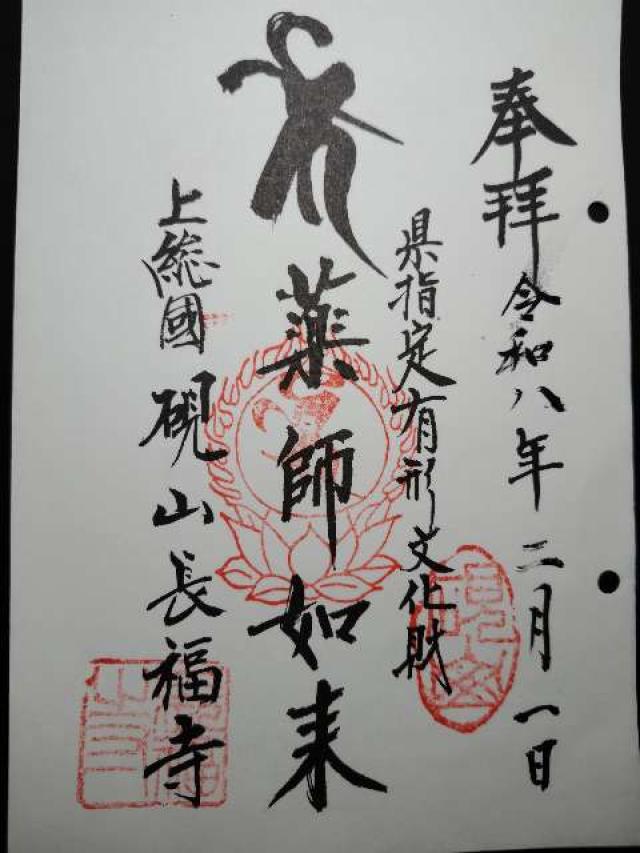 奉拝 令和八年二月一日
県指定有形文化財
薬師如来
上総國 硯山長福寺